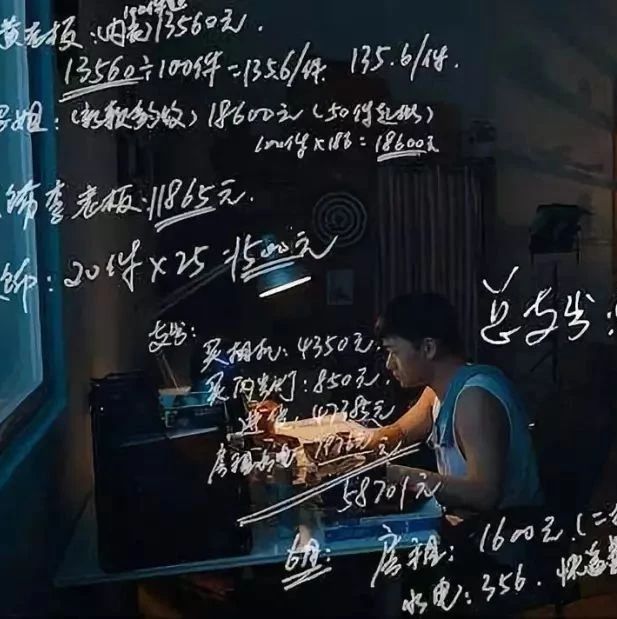 黄老板:(内衣)13560元.
13560÷100件=135.6/件. 135.6/件.
姐:(新款多数)18600元(50件起批)
100件×186=18600元
饰李老板:11865元.
饰:20件×25=1500元
总支出:
支出:
买相机:4350元.
买两光灯:850元.
进货:47385元
房租水电 元
58701元
6月: 房租:1600元.(二
水电:356. 快递